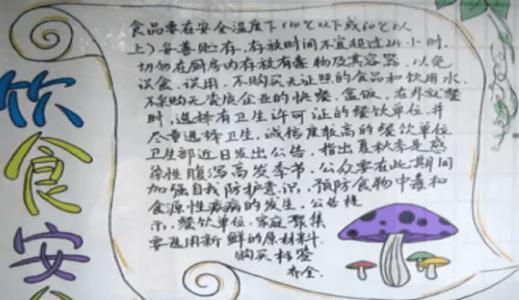 饮食安
食品要在安全温度下(10℃以下或60℃以
上)妥善贮存,存放时间不宜超过24小时,
切勿在厨房内存放有毒物及其容器,以免
误食、误用。不购买无证照的食品和饮用水,
不采购无资质企业的快餐、盒饭。在外就餐
时,选择有卫生许可证的餐饮单位,并
尽量选择卫生、诚信度较高的餐饮单位
卫生部近日发出公告,指出夏秋季是感
染性腹泻高发季节,公众要在此期间
加强自我防护意识,预防食物中毒和
食源性疾病的发生。公告提
示,餐饮单位、家庭聚集
要选用新鲜的原材料,
购买标签
齐全